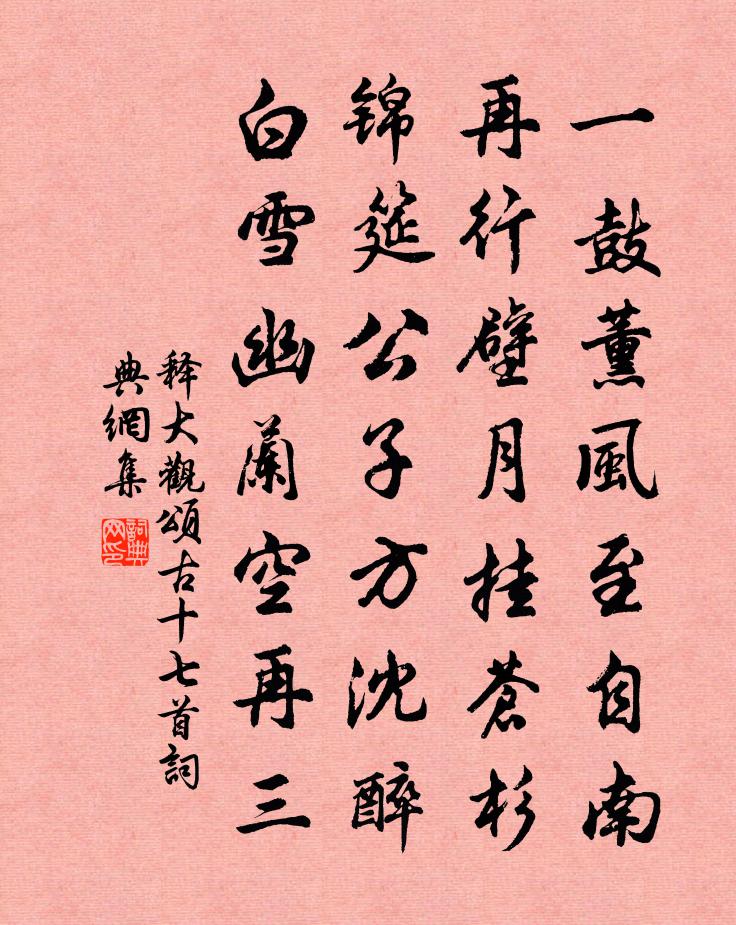 一鼓薰風至自南
再行璧月挂蒼杉
锦筵公子方沈醉
白雪幽蘭空再三
释大觀頌古十七首詞
典網集
詞典
网印